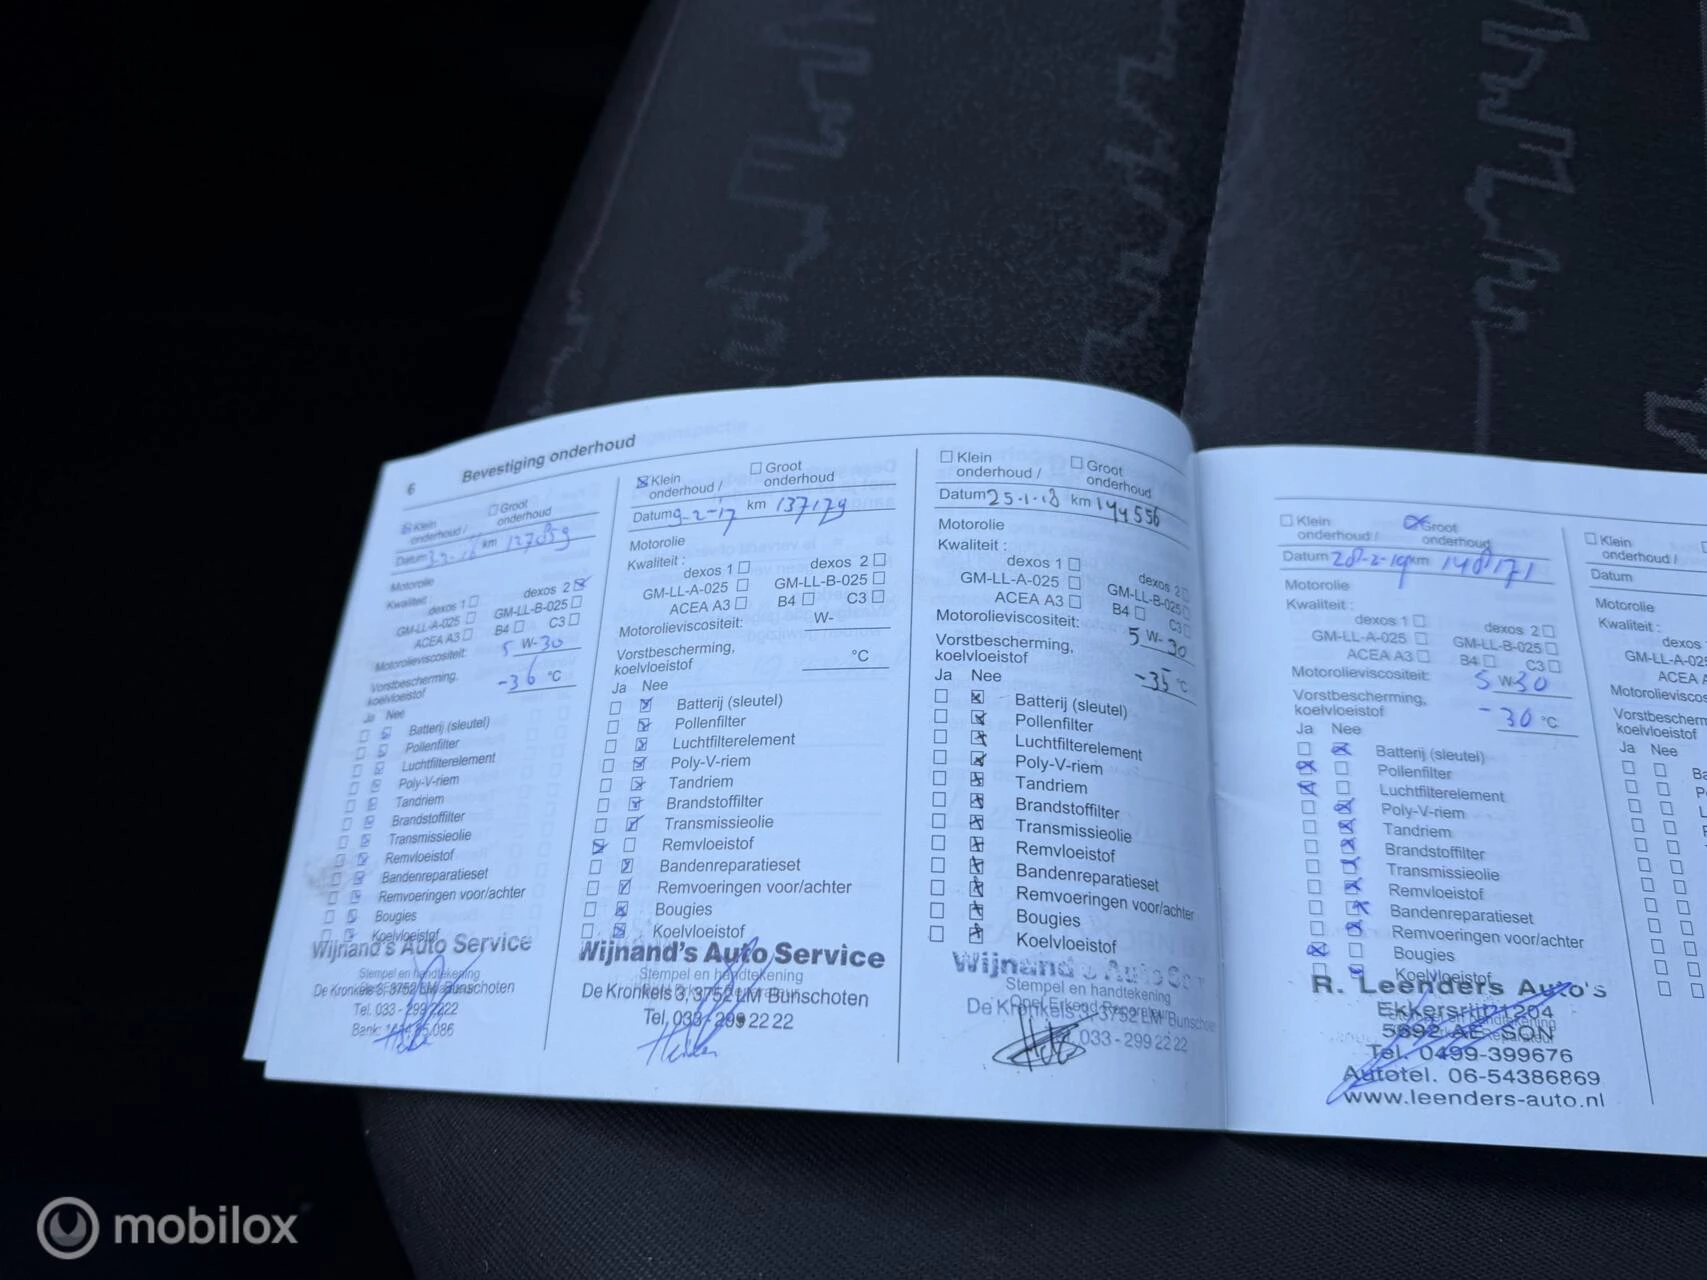 6 Bevestiging onderhoud
☒ Klein onderhoud / ☐ Groot onderhoud
Datum km
Motorolie
Kwaliteit :
dexos 1 ☐ dexos 2 ☒
GM-LL-A-025 ☐ GM-LL-B-025 ☐
ACEA A3 ☐ B4 ☐ C3 ☐
Motorolieviscositeit: 5 W-30
Vorstbescherming,
koelvloeistof -36 °C
Ja Nee
☐ ☒ Batterij (sleutel)
☐ ☒ Pollenfilter
☐ ☒ Luchtfilterelement
☐ ☒ Poly-V-riem
☐ ☒ Tandriem
☐ ☒ Brandstoffilter
☐ ☒ Transmissieolie
☐ ☒ Remvloeistof
☐ ☒ Bandenreparatieset
☐ ☒ Remvoeringen voor/achter
☐ ☒ Bougies
☐ ☒ Koelvloeistof
Wijnand's Auto Service
Stempel en handtekening
De Kronkels 3, 3752 LM Bunschoten
Tel. 033 - 299 2222
Bank:
☒ Klein onderhoud / ☐ Groot onderhoud
Datum 9-2-17 km 137179
Motorolie
Kwaliteit :
dexos 1 ☐ dexos 2 ☐
GM-LL-A-025 ☐ GM-LL-B-025 ☐
ACEA A3 ☐ B4 ☐ C3 ☐
Motorolieviscositeit: W-
Vorstbescherming,
koelvloeistof °C
Ja Nee
☐ ☒ Batterij (sleutel)
☐ ☒ Pollenfilter
☐ ☒ Luchtfilterelement
☐ ☒ Poly-V-riem
☐ ☒ Tandriem
☐ ☒ Brandstoffilter
☐ ☒ Transmissieolie
☒ ☐ Remvloeistof
☐ ☒ Bandenreparatieset
☐ ☒ Remvoeringen voor/achter
☐ ☒ Bougies
☐ ☒ Koelvloeistof
Wijnand's Auto Service
Stempel en handtekening
De Kronkels 3, 3752 LM Bunschoten
Tel. 033 - 299 22 22
☐ Klein onderhoud / ☐ Groot onderhoud
Datum 25-1-18 km 144556
Motorolie
Kwaliteit :
dexos 1 ☐ dexos 2 ☐
GM-LL-A-025 ☐ GM-LL-B-025 ☐
ACEA A3 ☐ B4 ☐ C3 ☐
Motorolieviscositeit: 5 W-30
Vorstbescherming,
koelvloeistof -35 °C
Ja Nee
☐ ☒ Batterij (sleutel)
☐ ☒ Pollenfilter
☐ ☒ Luchtfilterelement
☐ ☒ Poly-V-riem
☐ ☒ Tandriem
☐ ☒ Brandstoffilter
☐ ☒ Transmissieolie
☐ ☒ Remvloeistof
☐ ☒ Bandenreparatieset
☐ ☒ Remvoeringen voor/achter
☐ ☒ Bougies
☐ ☒ Koelvloeistof
Wijnand's Auto Ser
Stempel en handtekening
Opel Erkend Reparateur
De Kronkels 3, 3752 LM Bunschoten
033 - 299 22 22
☐ Klein onderhoud / ☒ Groot onderhoud
Datum 28-2-19 km 148171
Motorolie
Kwaliteit :
dexos 1 ☐ dexos 2 ☐
GM-LL-A-025 ☐ GM-LL-B-025 ☐
ACEA A3 ☐ B4 ☐ C3 ☐
Motorolieviscositeit: 5 W 30
Vorstbescherming,
koelvloeistof -30 °C
Ja Nee
☐ ☒ Batterij (sleutel)
☒ ☐ Pollenfilter
☒ ☐ Luchtfilterelement
☐ ☒ Poly-V-riem
☐ ☒ Tandriem
☐ ☒ Brandstoffilter
☐ ☒ Transmissieolie
☐ ☒ Remvloeistof
☐ ☒ Bandenreparatieset
☐ ☒ Remvoeringen voor/achter
☒ ☐ Bougies
☐ ☒ Koelvloeistof
R. Leenders Auto's
Ekkersrijt 1204
5692 AE SON
Tel. 0499-399676
Autotel. 06-54386869
www.leenders-auto.nl
☐ Klein
onderhoud /
Datum
Motorolie
Kwaliteit :
dexos
GM-LL-A-02
ACEA A
Motorolievisco
Vorstbescherm
koelvloeistof
Ja Nee
mobilox